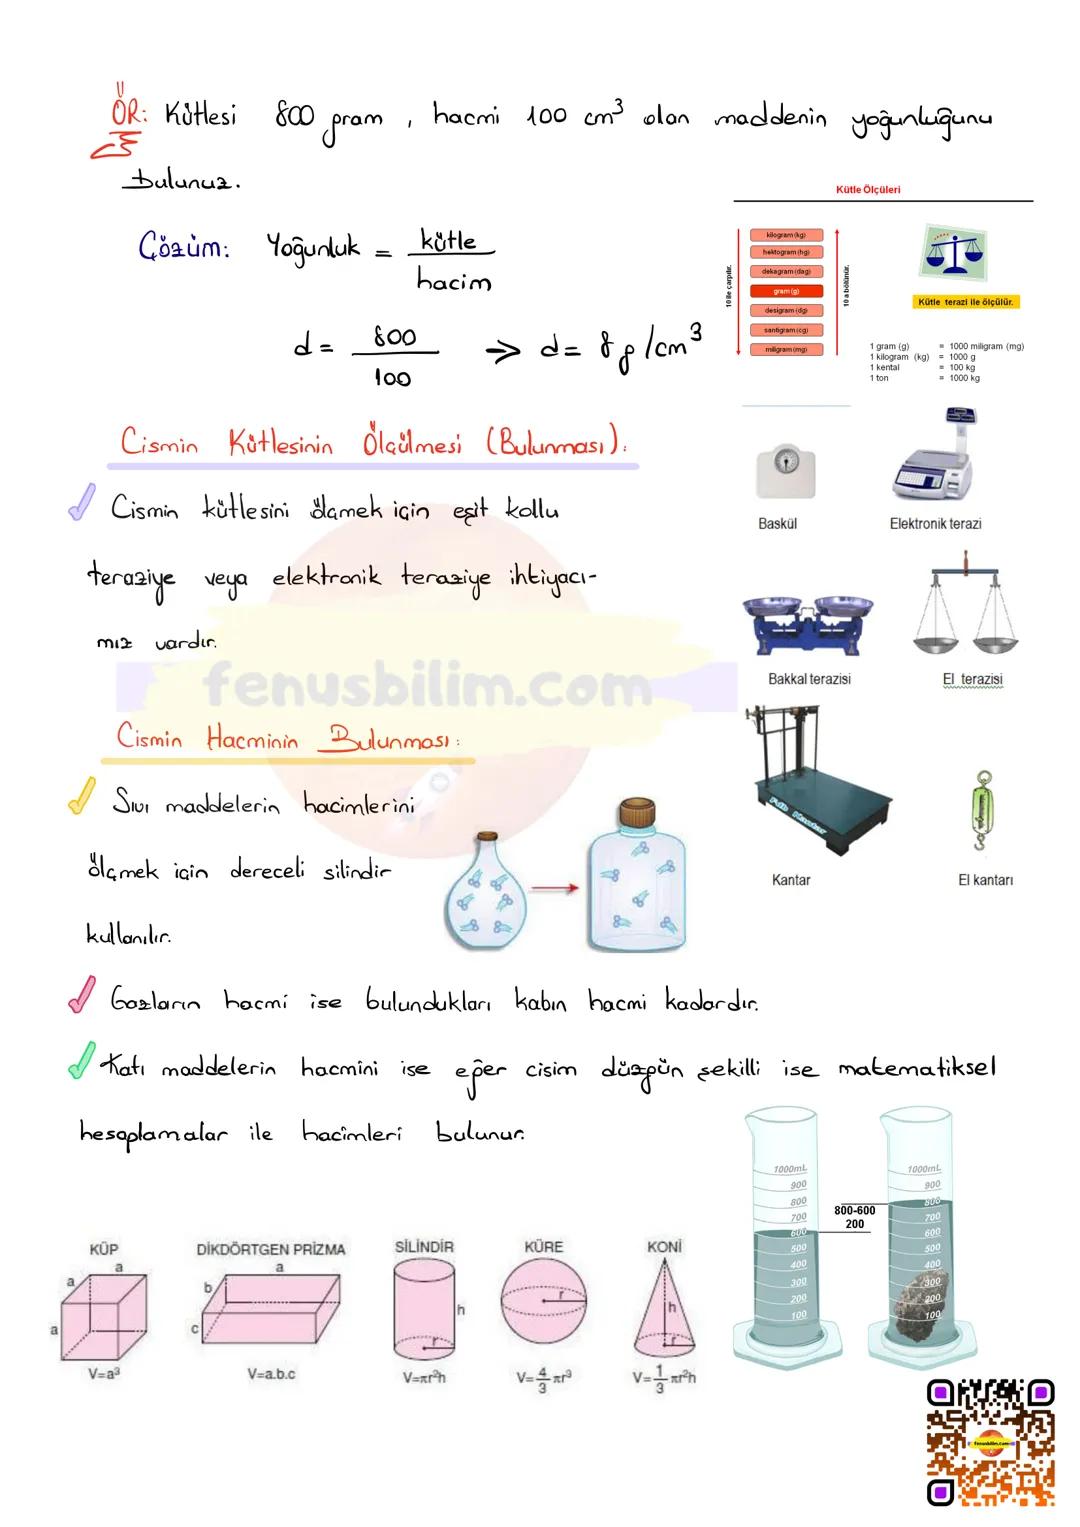 ÖR: Kütlesi 800 gram , hacmi 100 cm³ olan maddenin yoğunluğunu
bulunuz.
Çözüm: Yoğunluk = kütle
hacim
d = 800
100
⇒ d = 8 g/cm³
Kütle Ölçüleri
10 ile çarpılır.
kilogram (kg)
hektogram (hg)
dekagram (dag)
gram (g)
desigram (dg)
santigram (cg)
miligram (mg)
10 a bölünür.
Kütle terazi ile ölçülür.
1 gram (g) = 1000 miligram (mg)
1 kilogram (kg) = 1000 g
1 kental = 100 kg
1 ton = 1000 kg
Cismin Kütlesinin Ölçülmesi (Bulunması):
Cismin kütlesini ölçmek için eşit kollu
teraziye veya elektronik teraziye ihtiyacı-
mız vardır.
Baskül
Elektronik terazi
Bakkal terazisi
El terazisi
Kantar
El kantarı
fenusbilim.com
Cismin Hacminin Bulunması:
Sıvı maddelerin hacimlerini
ölçmek için dereceli silindir
kullanılır.
Gazların hacmi ise bulundukları kabın hacmi kadardır.
Katı maddelerin hacmini ise eğer cisim düzgün şekilli ise matematiksel
hesaplamalar ile hacimleri bulunur.
KÜP
a
a
a
V=a³
DİKDÖRTGEN PRİZMA
a
b
c
V=a.b.c
SİLİNDİR
h
r
V=πr²h
KÜRE
r
V=4/3 πr³
KONİ
h
r
V=1/3 πr²h
1000mL
900
800
700
600
500
400
300
200
100
800-600
200
1000mL
900
800
700
600
500
400
300
200
100
fenusbilim.com